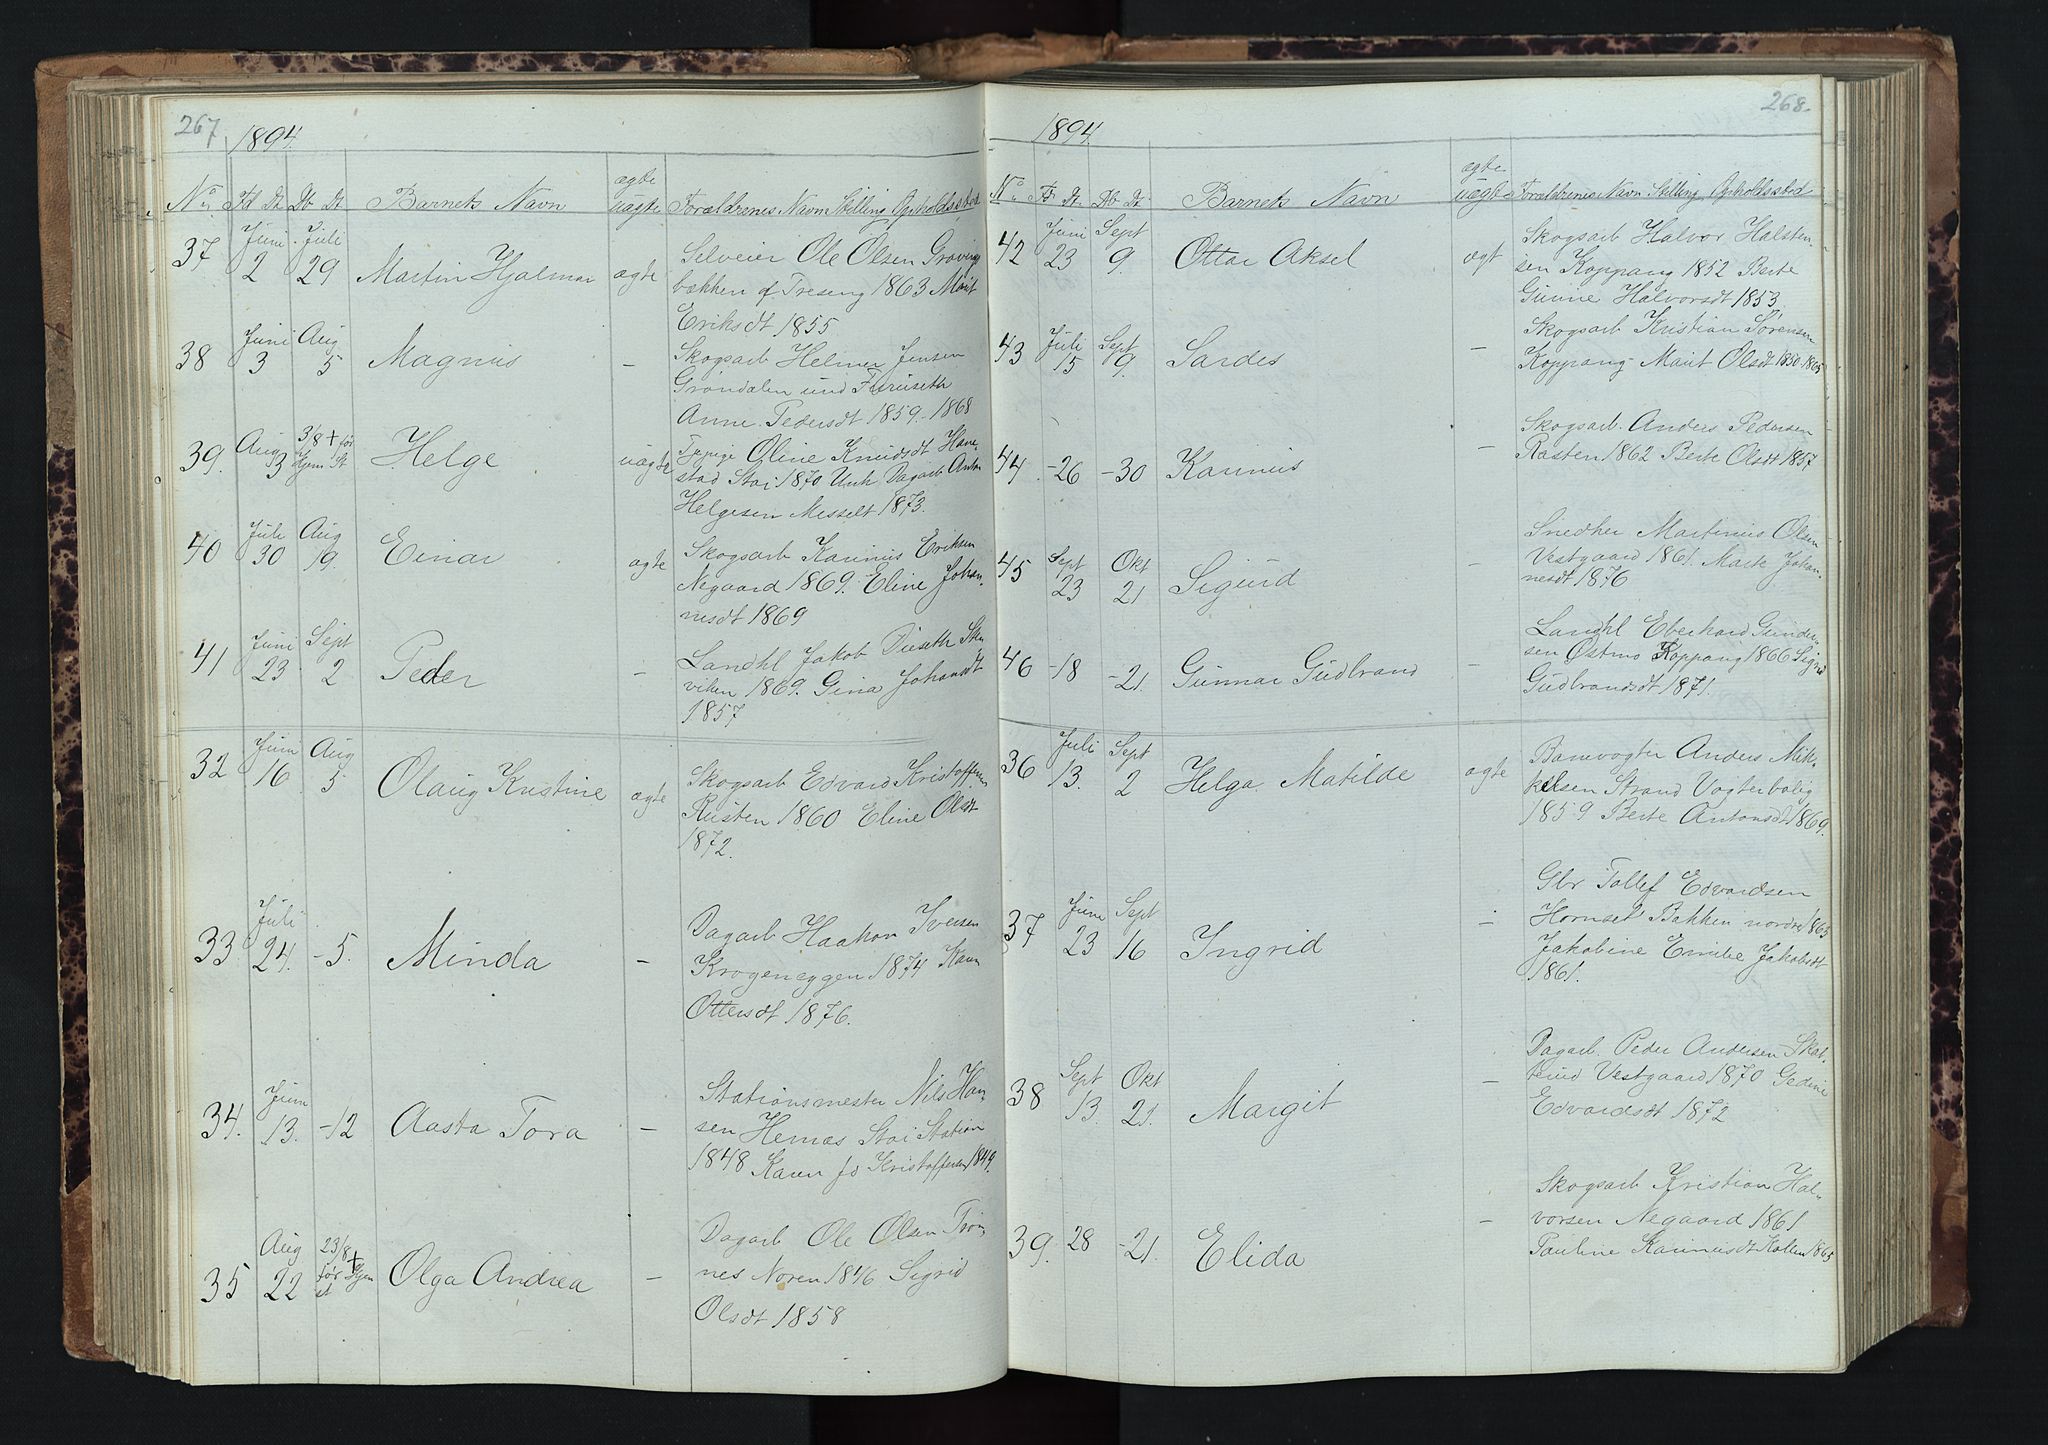 267
1894.
No Fd Dt Db Dt Barnets Navn ægte uægte Forældrenes Navn Stilling Opholdssted
37 Juni 2 Juli 29 Martin Hjalmar ægte Selveier Ole Olsen
bækken af Treseng 1863 Marit
Eriksdt 1855
38 Juni 3 Aug 5 Magnus - Skogsarb Helmer Jensen
Grøndalen und Furuseth
Anne Pedersdt 1859-1868
39. Aug 3 3/8 + før Hjem St Helge uægte Tjpige Oline Knudsdt Hane-
stad Stai 1870 Unk Dagarb Anton
Helgesen Messelt 1873.
40 Juli 30 Aug 19. Einar ægte Skogsarb Karinus Eriksen
Negaard 1869. Eline Johan-
nesdt 1869
41 Juni 23 Sept 2 Peder - Landhl Jakob Diseth Sten
viken 1869. Gina Johansdt
1857
32 Juni 16. Aug 5 Olaug Kristine ægte Skogsarb Edvard Kristoffersen
Rusten 1860 Eline Olsdt
1872.
33 Juli 24. -5. Minda - Dagarb Haakon Iversen
Krogeneggen 1874 Karen
Ottersdt 1876.
34. Juni 13. -12 Aasta Tora - Stationsmester Nils Han-
sen Hernæs Stai Station
1848 Karen fd Kristoffersen 1849.
35 Aug 22 23/8 + før Hjem st Olga Andrea - Dagarb Ole Olsen Trøn-
nes Noren 1846 Sigrid
Olsdt 1858
268.
1894.
No Fd Dt. Db Dt. Barnets Navn ægte uægte Forældrenes Navn Stilling Opholdssted
42 Juni 23 Sept 9. Ottar Aksel ægt Skogsarb Halvor Halsten-
sen Koppang 1852 Berte
Gunne Halvorsdt 1853.
43 Juli 15 Sept 9. Sardes - Skogsarb Kristian Sørensen
Koppang Marit Olsdt 1850-1865
44. -26 -30 Karinus - Skogsarb. Anders Pedersen
Rasten 1862 Berte Olsdt 1857
45 Sept 23 Okt 21 Sigurd - Snedker Martinius Olsen
Vestgaard 1861. Marte Johan-
nesdt 1876
46 -18 -21. Gunnar Gudbrand - Landhl Eberhard Gunder-
sen Østmo Koppang 1866 Sigrid
Gudbrandsdt 1871.
36 Juli 13. Sept 2 Helga Matilde ægte Banevogter Anders Mik-
kelsen Strand Vogterbolig
1859 Berte Antonsdt 1869.
37 Juni 23 Sept 16 Ingrid - Gbr Tollef Edvardsen
Hornset Bakken nordre 1865
Jakobine Emilie Jakobsdt
1861.
38 Sept 13. Okt 21. Margit - Dagarb. Peder Andersen Skat-
teiud Vestgaard 1870 Gedine
Edvardsdt 1872
39. -28 -21. Elida - Skogsarb Kristian Hal-
vorsen Negaard 1861
Pauline Karinusdt Kollen 1865